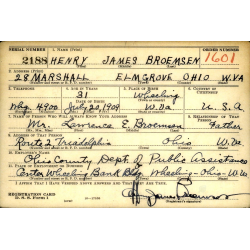 SERIAL NUMBER 1. NAME (Print) ORDER NUMBER
2188 HENRY JAMES BROEMSEN 1601
2. ADDRESS (Print)
28 MARSHALL ELMGROVE OHIO W.VA
3. TELEPHONE 4. AGE IN YEARS 5. PLACE OF BIRTH 6. COUNTRY OF CITIZENSHIP
31 Wheeling
DATE OF BIRTH
Whg. 4900 July 20 1909 W.Va U.S.A.
7. NAME OF PERSON WHO WILL ALWAYS KNOW YOUR ADDRESS 8. RELATIONSHIP OF THAT PERSON
Mr. Lawrence E. Broemsen Father
9. ADDRESS OF THAT PERSON
Route 2 Triadelphia Ohio W.Va
10. EMPLOYER'S NAME
Ohio County Dept. of Public Assistance
11. PLACE OF EMPLOYMENT OR BUSINESS
Center Wheeling Bank Bldg. Wheeling-Ohio-W.Va
I AFFIRM THAT I HAVE VERIFIED ABOVE ANSWERS AND THAT THEY ARE TRUE.
REGISTRATION CARD
D. S. S. Form 1
H. James Broemsen